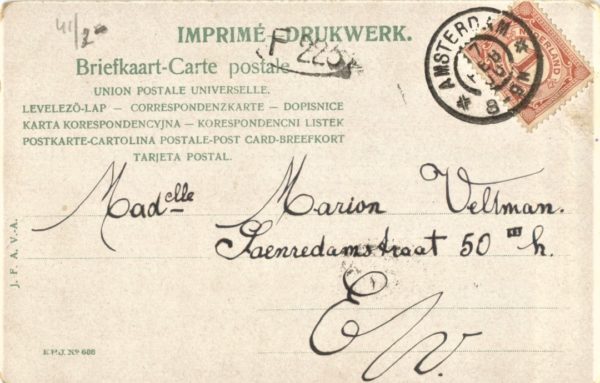 41/2
IMPRIMÉ-DRUKWERK.
F 225
Briefkaart-Carte postale
UNION POSTALE UNIVERSELLE.
LEVELEZŐ-LAP — CORRESPONDENZKARTE — DOPISNICE
KARTA KORESPONDENCYJNA — KORESPONDENCNI LISTEK
POSTKARTE-CARTOLINA POSTALE-POST CARD-BREEFKORT
TARJETA POSTAL.
AMSTERDAM
NEDERLAND
Madelle Marion Veltman.
Saenredamstraat 50 III h.
E.V.
J. F. A. V.-A.
E.P.J. No 688